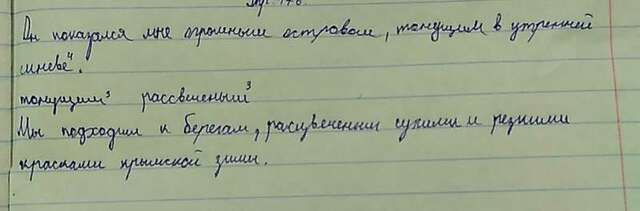 Он показался мне огромным островом, тонущим в утренней
мгле⁴.
тонущим³ рассвеченый³
Мы подходили к берегам, расцвеченным сухими и резкими
красками крымской зимы.